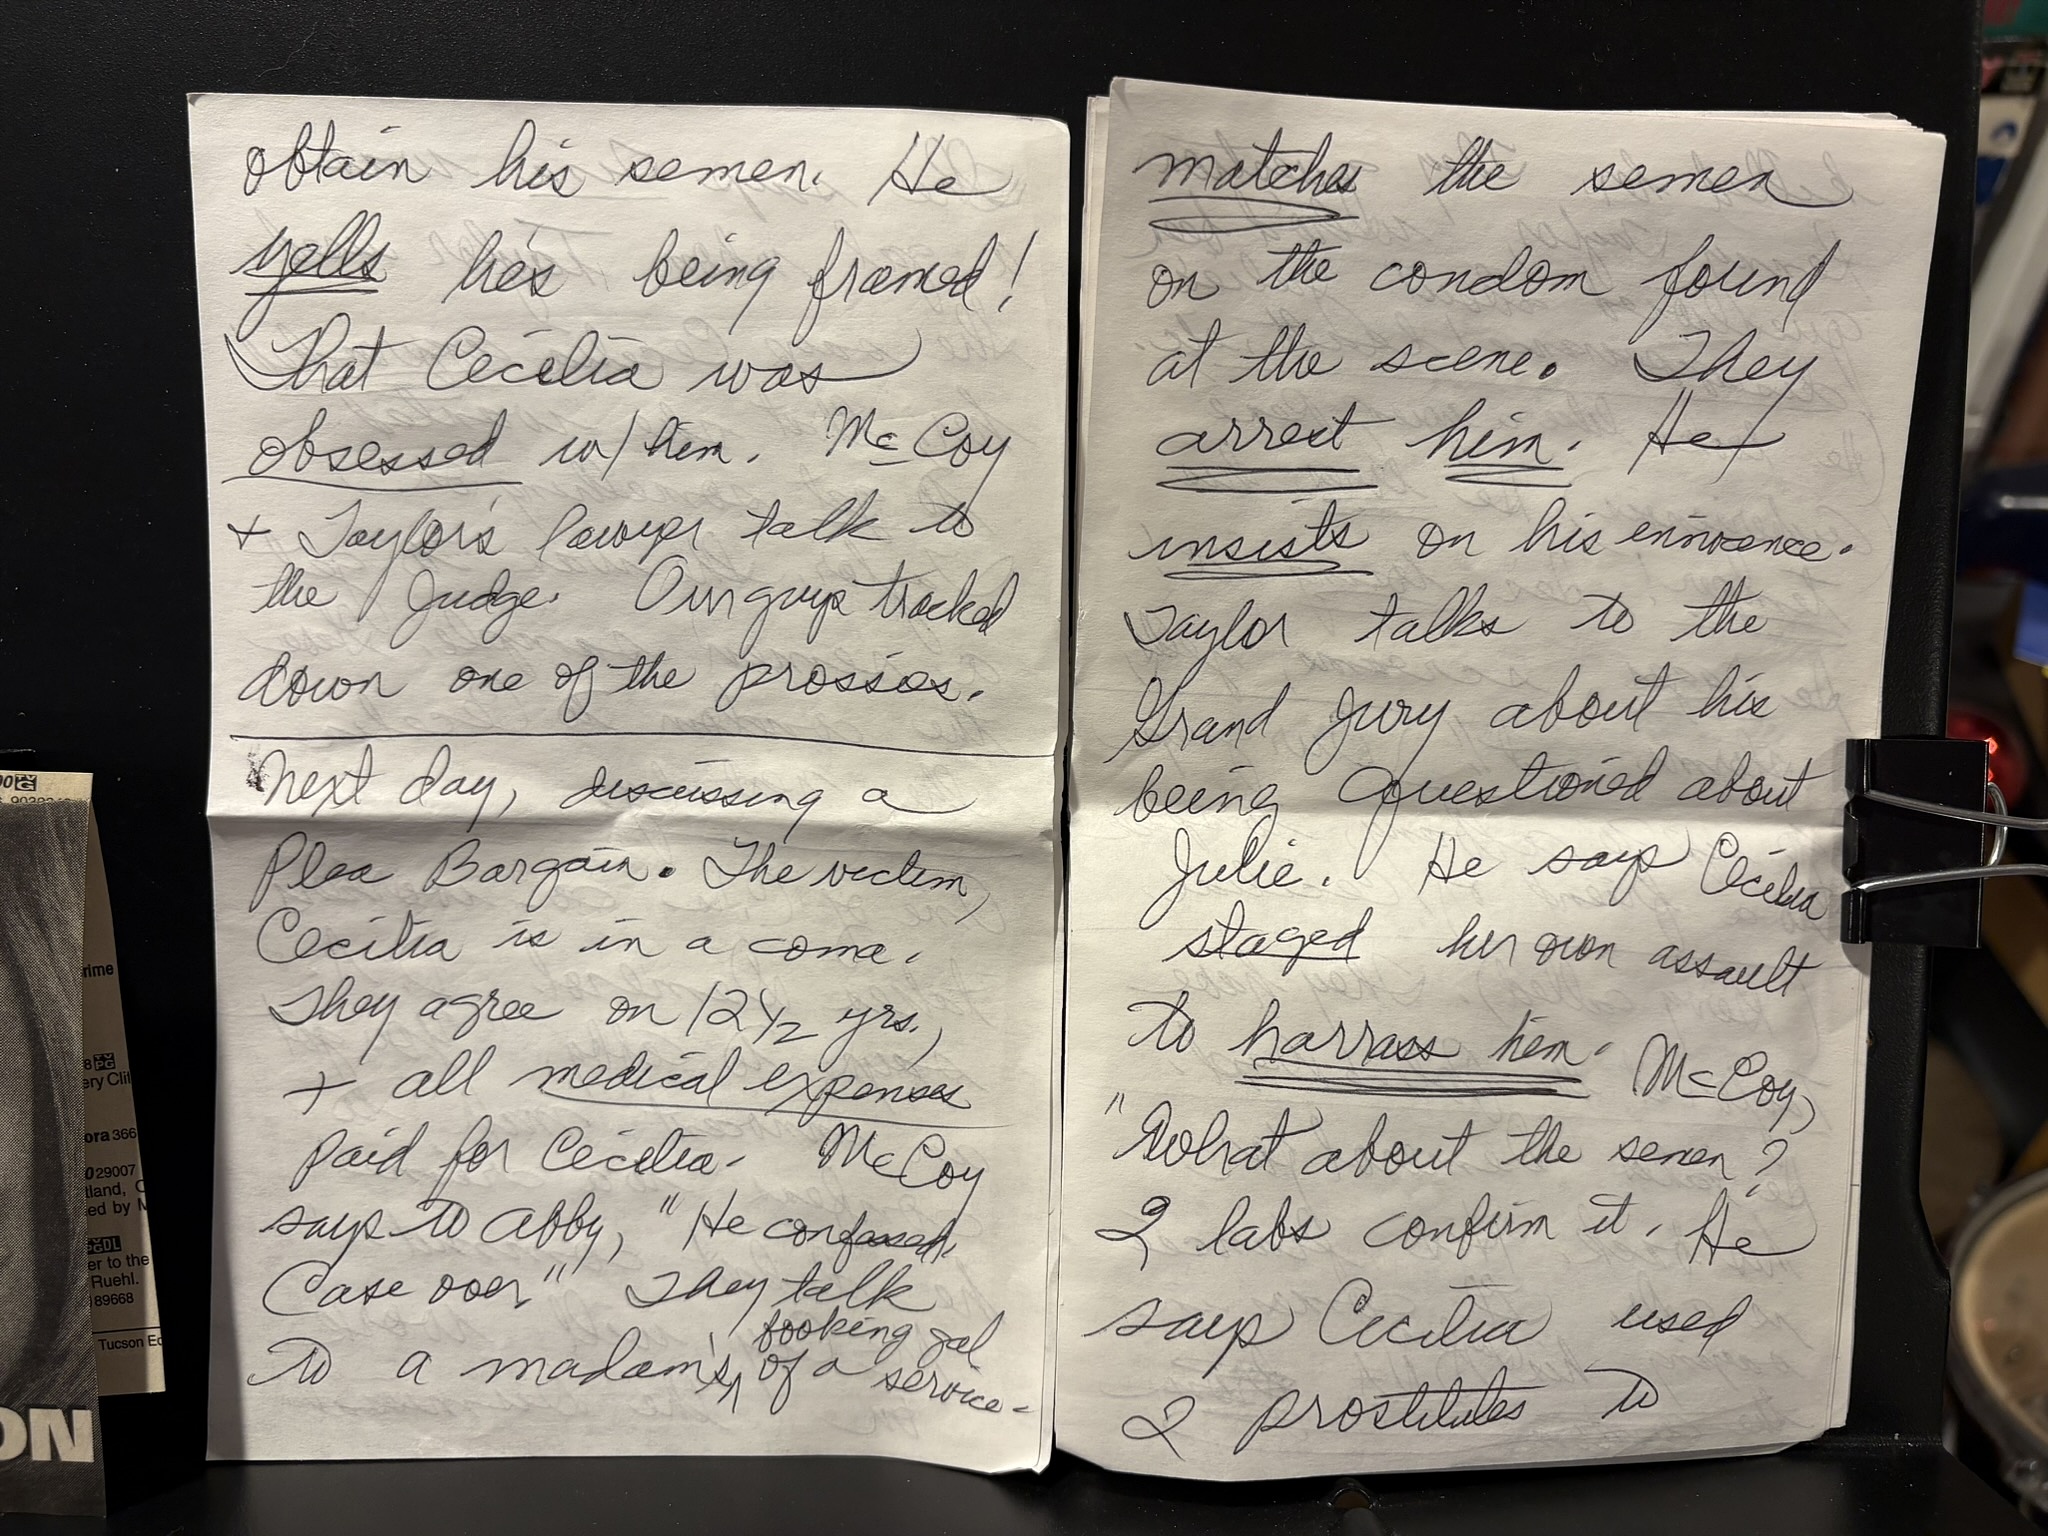 obtain his semen. He
yells he's being framed!
That Cecilia was
obsessed w/ him. McCoy
+ Taylor's lawyer talk to
the Judge. Our guys tracked
down one of the prossies.
Next day, discussing a
Plea Bargain. The victim,
Cecilia is in a coma.
They agree on 12 1/2 yrs.,
+ all medical expenses
paid for Cecilia. McCoy
says to Abby, "He confessed.
Case over." They talk
booking gal
to a madam's, of a service.
matches the semen
on the condom found
at the scene. They
arrest him. He
insists on his innocence.
Taylor talks to the
Grand Jury about his
being questioned about
Julie. He says Cecilia
staged her own assault
to harrass him. McCoy,
"What about the semen?
2 labs confirm it. He
says Cecilia used
2 prostitutes to
rime
ery Clif
ora 366
29007
tland, C
ed by M
er to the
Ruehl.
89668
Tucson Ed
ON